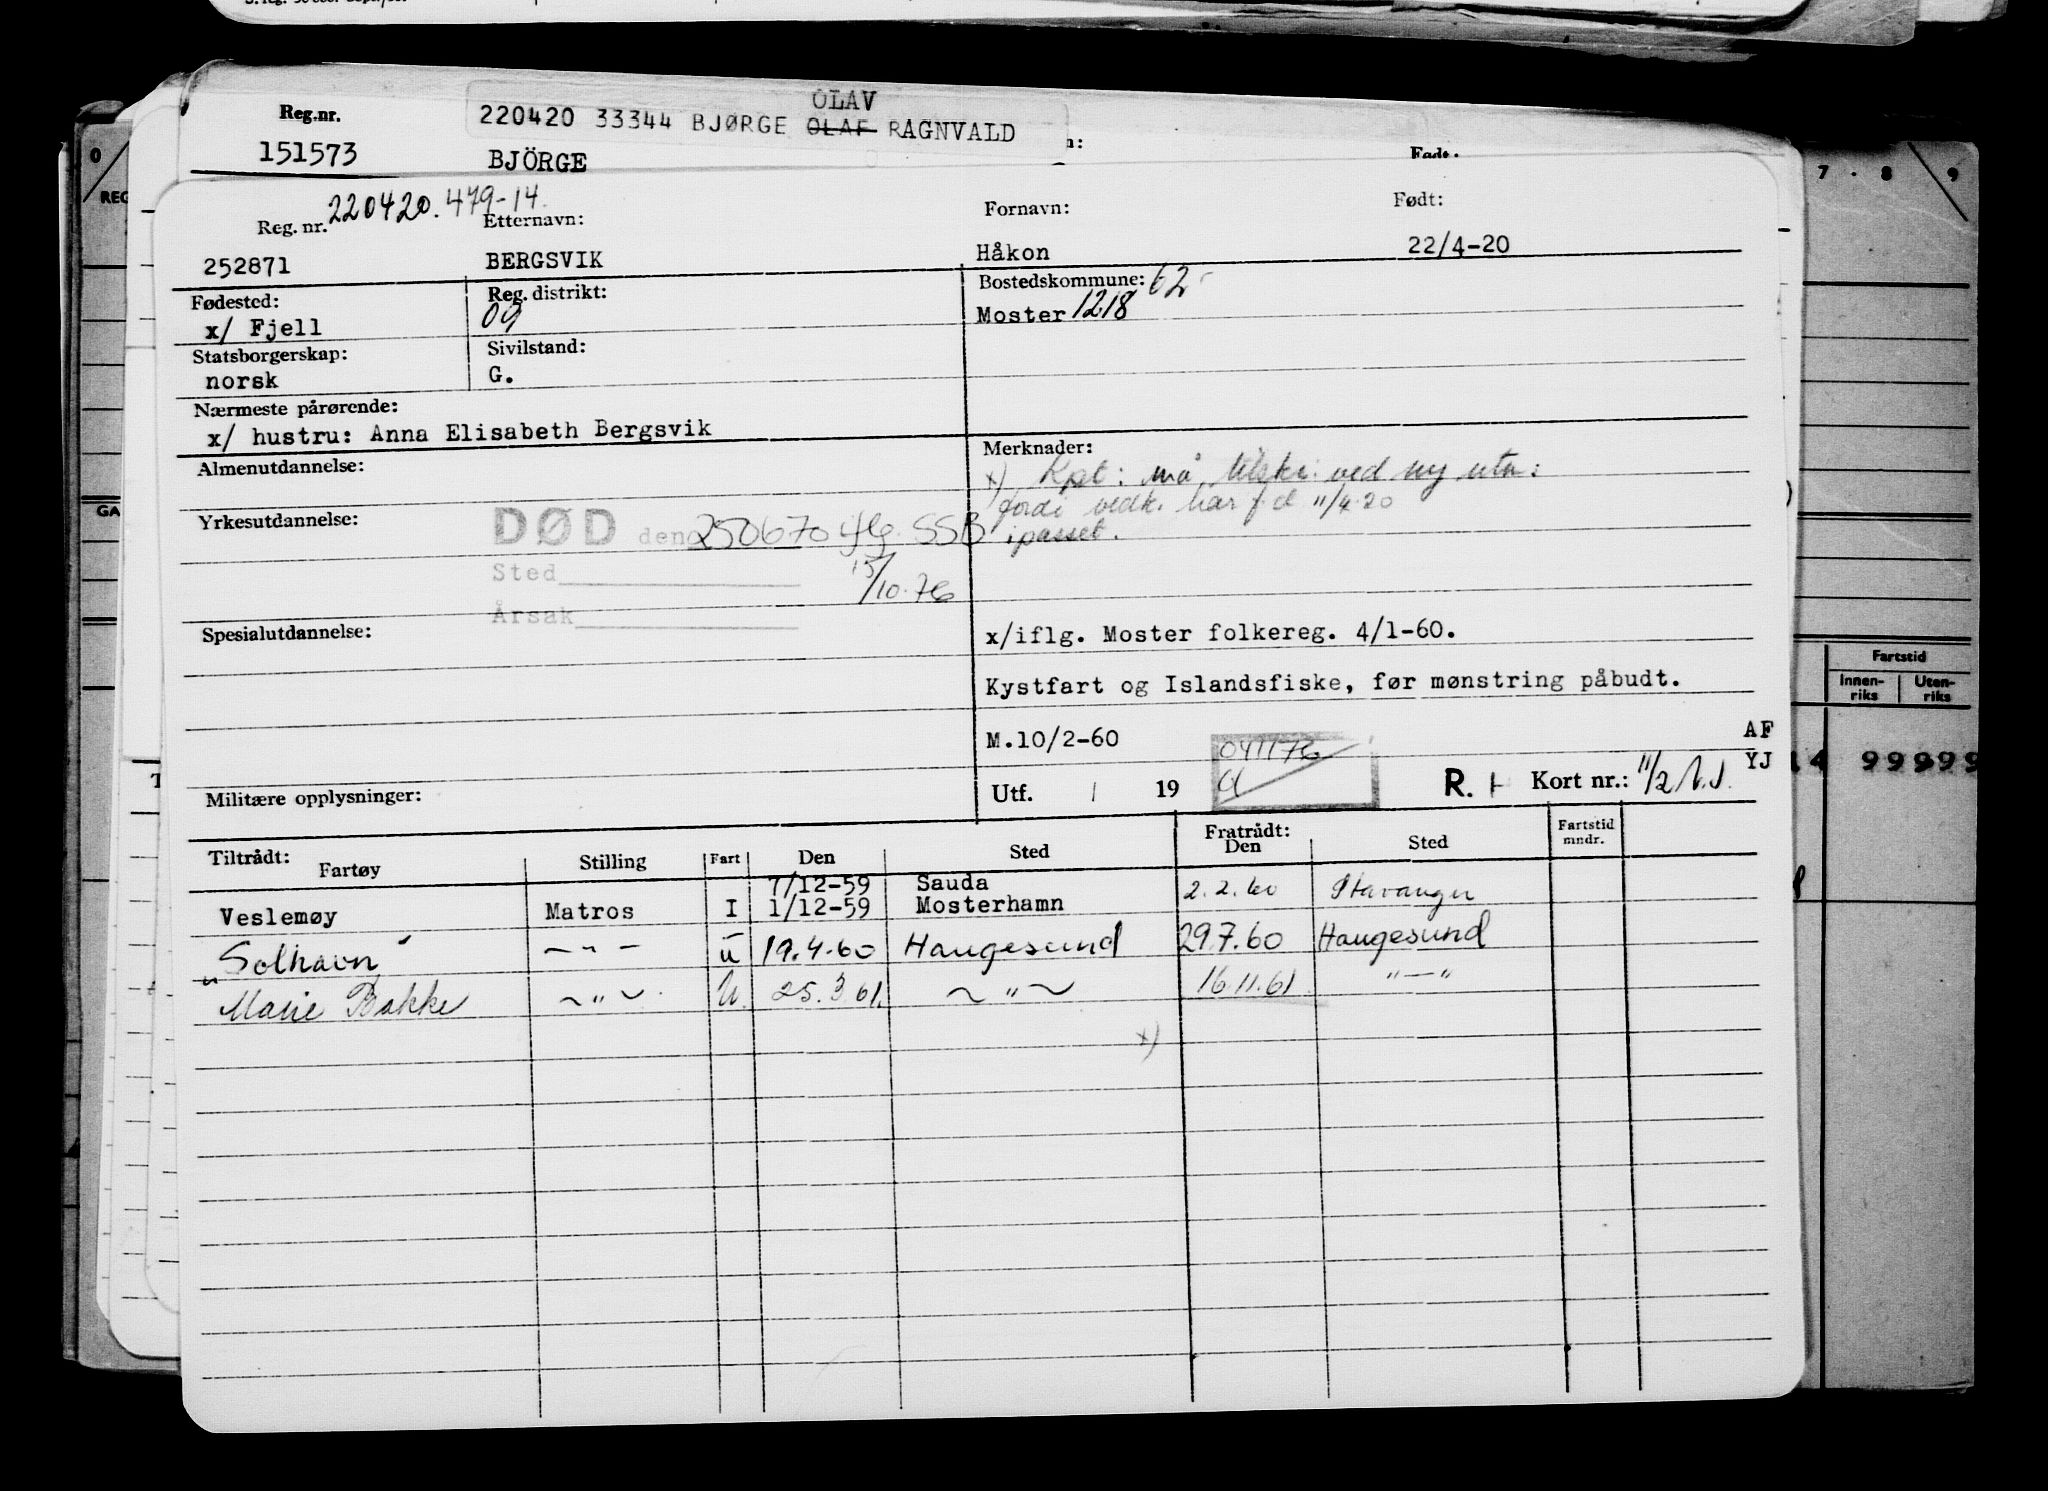 OLAV
Reg.nr. 220420 33344 BJØRGE OLAF RAGNVALD
151573 BJÖRGE
220420.479-14.
Reg. nr. Etternavn: Fornavn: Født:
252871 BERGSVIK Håkon 22/4-20
Fødested: Reg. distrikt: Bostedskommune: 62
x/ Fjell 09 Moster 1218
Statsborgerskap: Sivilstand:
norsk G.
Nærmeste pårørende:
x/ hustru: Anna Elisabeth Bergsvik
Almenutdannelse: Merknader:
x) Kpt: må tilskr. ved ny utm:
fordi vedk. har f.d 11/4-20
i passet.
Yrkesutdannelse:
DØD den 250670 iflg. SSB
Sted 15/10-76
Årsak
Spesialutdannelse:
x/iflg. Moster folkereg. 4/1-60.
Kystfart og Islandsfiske, før mønstring påbudt.
M.10/2-60 041176 AF
YJ
Militære opplysninger: Utf. / 19 R. Kort nr.:
Tiltrådt: Fratrådt:
Fartøy Stilling Fart Den Sted Den Sted Fartstid mndr.
7/12-59 Sauda
Veslemøy Matros I 1/12-59 Mosterhamn 2.2.60 Stavanger
"Solhavn" — " — u 19.4.60 Haugesund 29.7.60 Haugesund
Marie Bakke ~ " ~ U. 25.3.61. ~ " ~ 16.11.61 " — "
x)
0
REG
GA
7 . 8 9
Fartstid
Innen-
riks
Uten-
riks
99999